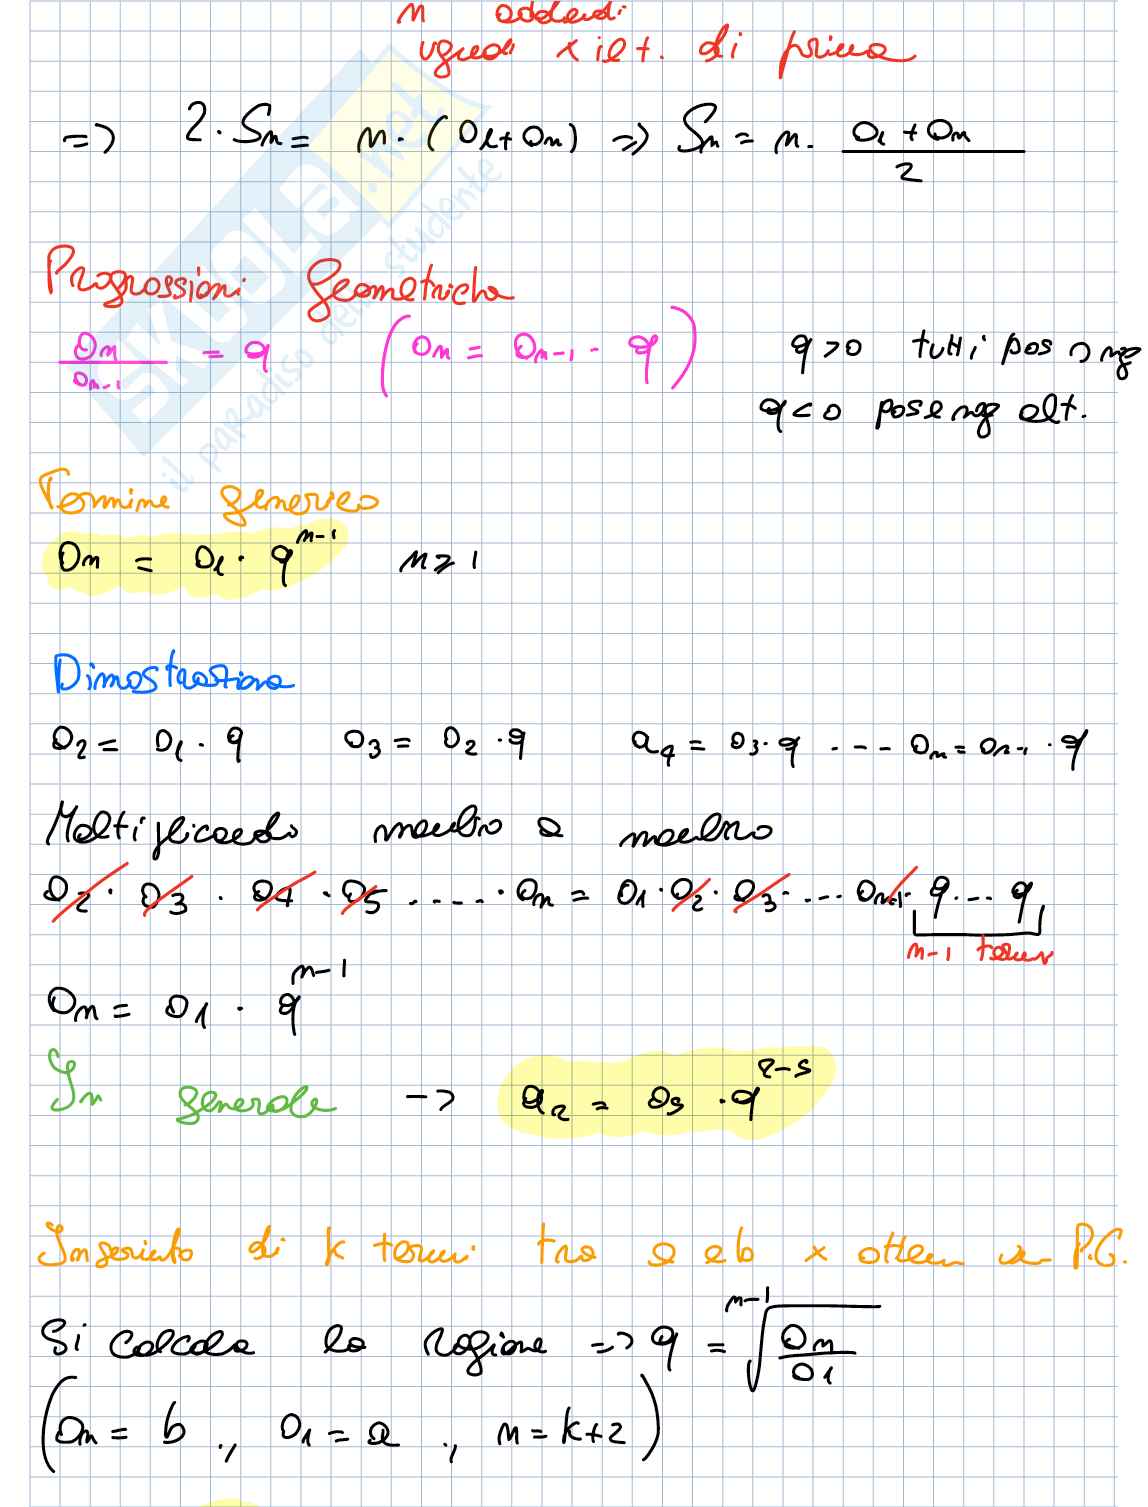 n addendi
uguali x ilt. di prima
=> 2 · Sn = n · (a1 + an) => Sn = n · (a1 + an)/2
Progressioni geometriche
an/an-1 = q (an = an-1 · q) q>0 tutti pos o neg
q<0 pos e neg alt.
Termine generico
an = a1 · q^(n-1) n ≥ 1
Dimostrazione
a2 = a1 · q a3 = a2 · q a4 = a3 · q .--- an = an-1 · q
Moltiplicando membro a membro
a2 · a3 · a4 · a5 ..... · an = a1 · a2 · a3 · ... an-1 · q ... q
n-1 termini
an = a1 · q^(n-1)
In generale -> ar = as · q^(r-s)
Inserimento di k termini tra a e b x otten un P.G.
Si calcola la ragione => q = ⁿ⁻¹√(an/a1)
(an = b ., a1 = a ., n = k+2)
SKUOLA.net
il paradiso dello studente